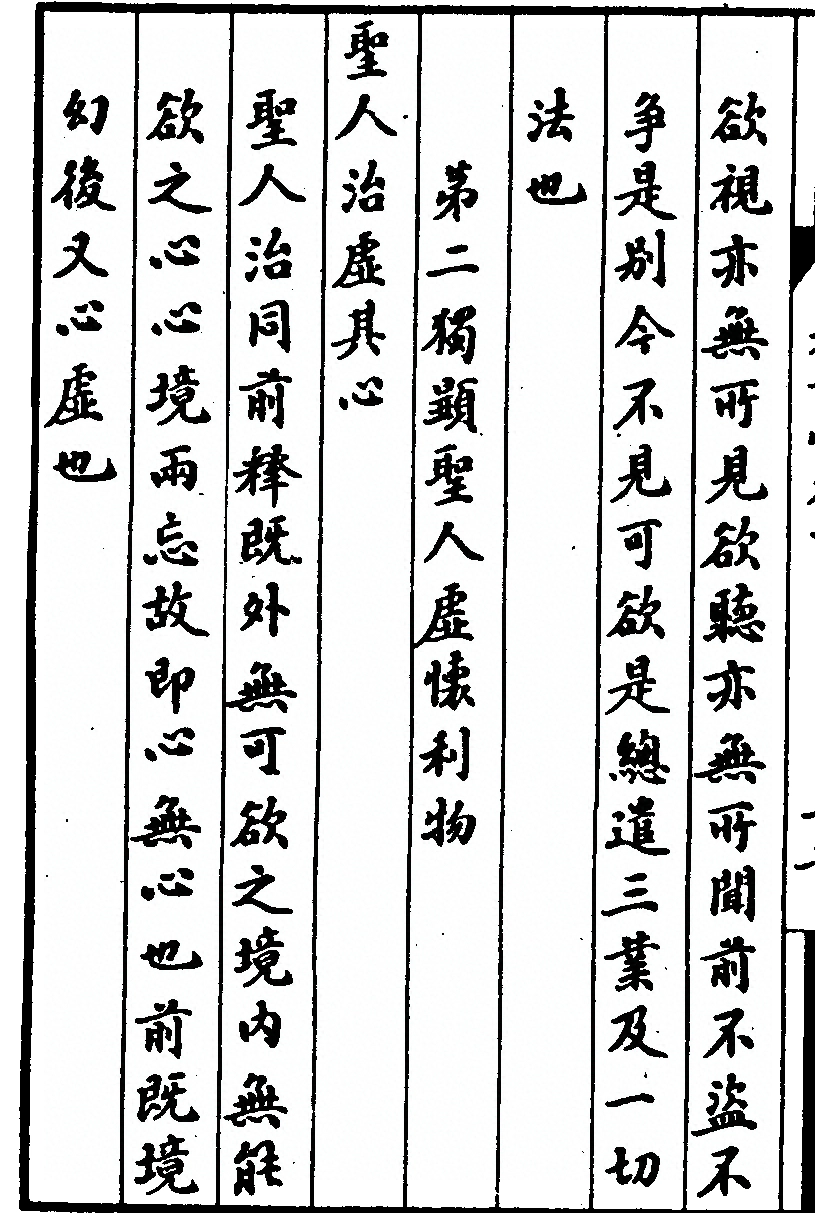 欲視亦無所見欲聽亦無所聞前不盜不
争是別今不見可欲是總遣三業及一切
法也
第二獨顯聖人虛懷利物
聖人治虛其心
聖人治同前釋既外無可欲之境内無能
欲之心心境兩忘故即心無心也前既境
幻後又心虛也